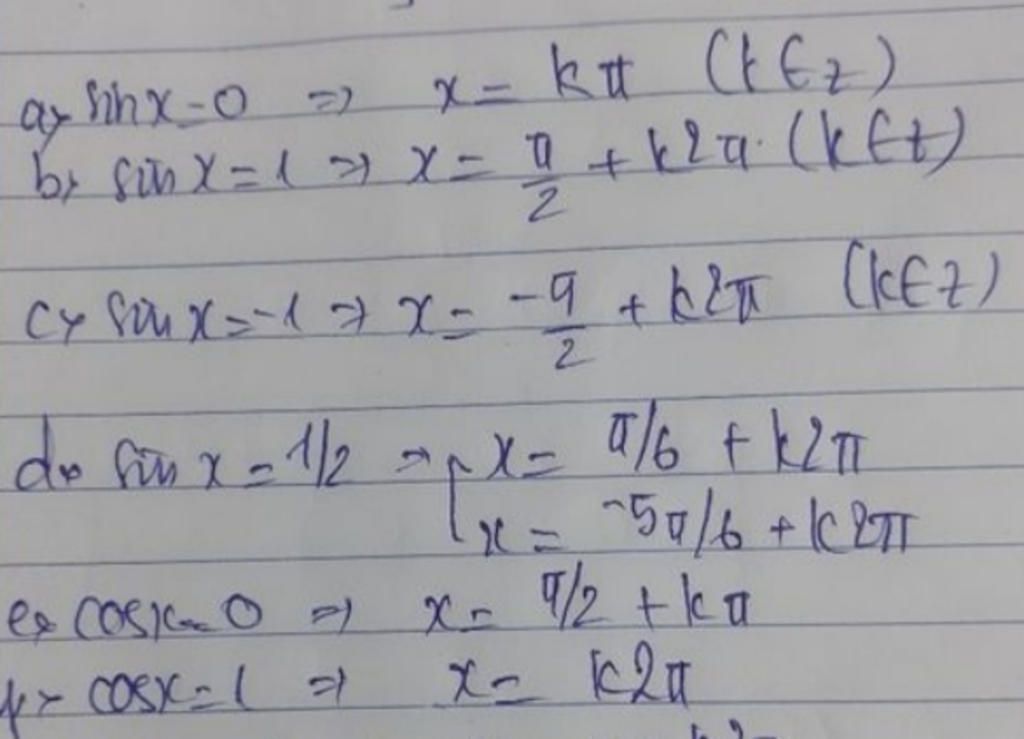 a, sinx = 0 => x = kπ (k ∈ z)
b, sin x = 1 => x = π/2 + k2π. (k ∈ z)
c, sin x = -1 => x = -π/2 + k2π (k ∈ z)
d, sin x = 1/2 => [ x = π/6 + k2π
x = -5π/6 + k2π
e, cosx = 0 => x = π/2 + kπ
f, cosx = 1 => x = k2π